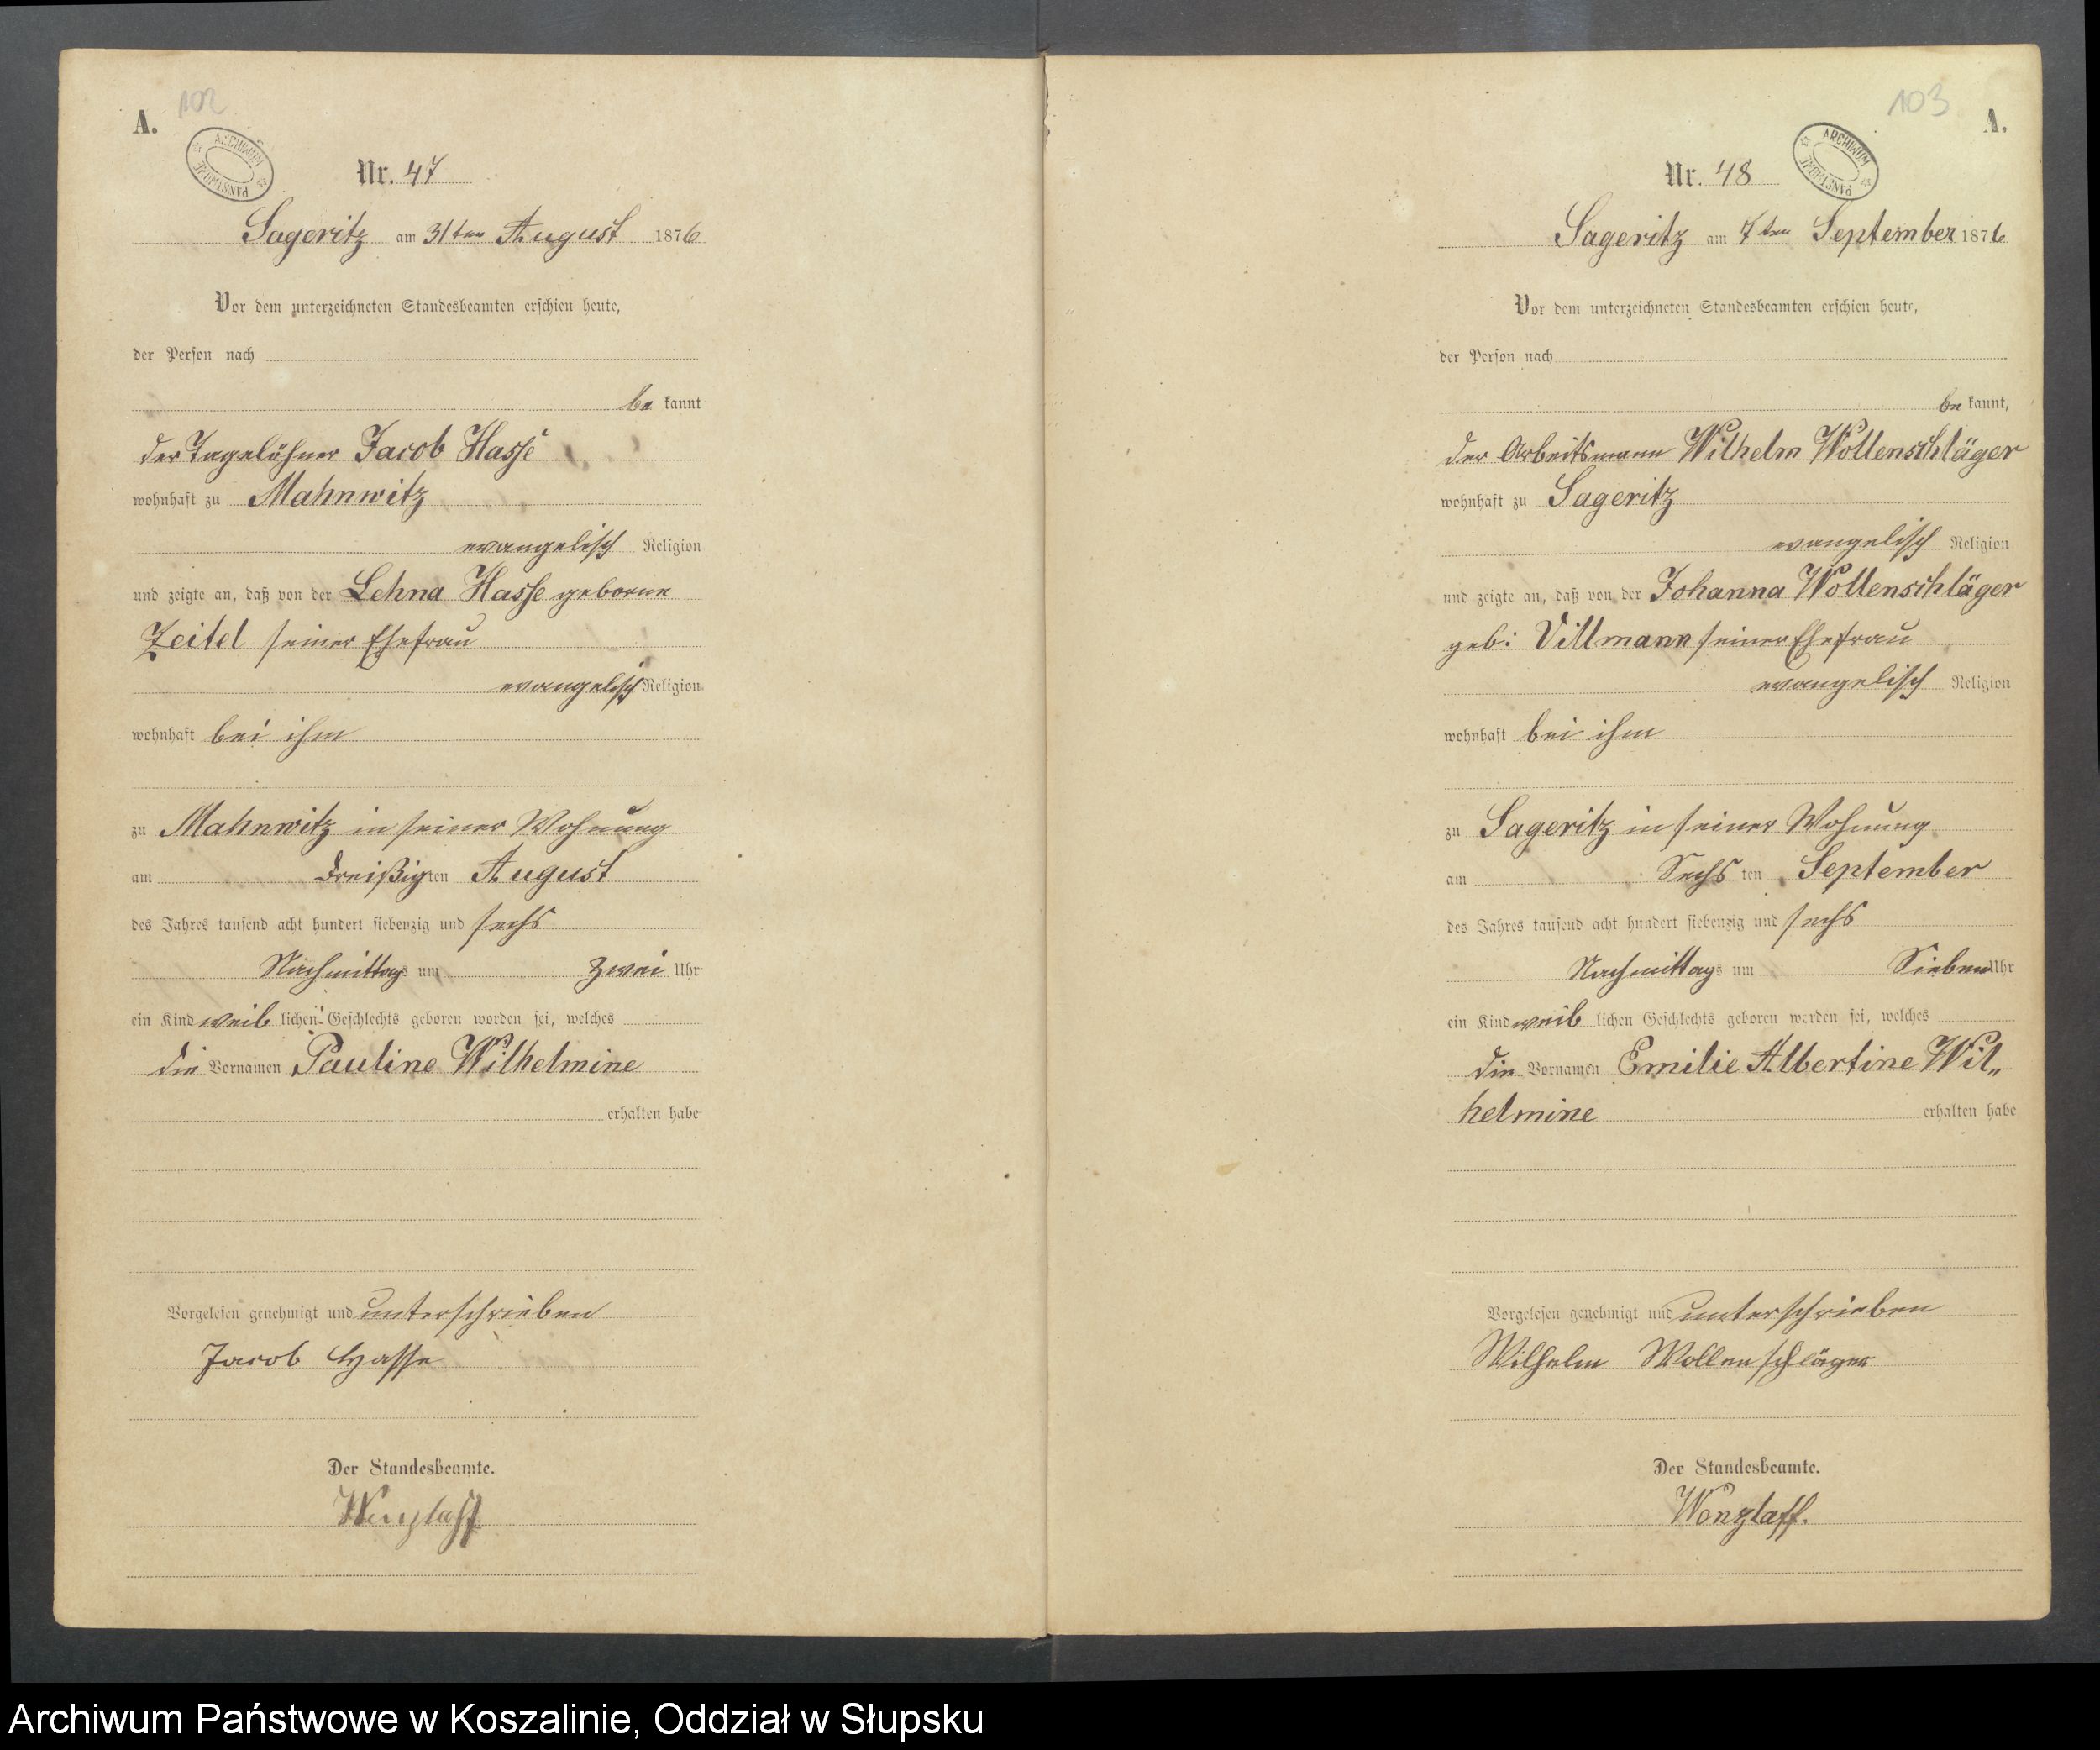 A.
102
ARCHIWUM PAŃSTWOWE
Nr. 47
Sageritz am 31ten August 1876
Vor dem unterzeichneten Standesbeamten erschien heute,
der Person nach
be kannt
der Tagelöhner Jacob Hasse
wohnhaft zu Mahnwitz
evangelisch Religion
und zeigte an, daß von der Lehna Hasse geborne
Zeitel seiner Ehefrau
evangelisch Religion
wohnhaft bei ihm
zu Mahnwitz in seiner Wohnung
am dreißigten August
des Jahres tausend acht hundert siebenzig und sechs
Nachmittags um zwei Uhr
ein Kind weib lichen Geschlechts geboren worden sei, welches
die Vornamen Pauline Wilhelmine
erhalten habe
Vorgelesen genehmigt und unterschrieben
Jacob Hasse
Der Standesbeamte.
Wenzlaff
103
A.
ARCHIWUM PAŃSTWOWE
Nr. 48
Sageritz am 7ten September 1876
Vor dem unterzeichneten Standesbeamten erschien heute,
der Person nach
be kannt,
der Arbeitsmann Wilhelm Wollenschläger
wohnhaft zu Sageritz
evangelisch Religion
und zeigte an, daß von der Johanna Wollenschläger
geb: Villmann seiner Ehefrau
evangelisch Religion
wohnhaft bei ihm
zu Sageritz in seiner Wohnung
am Sechs ten September
des Jahres tausend acht hundert siebenzig und sechs
Nachmittags um Sieben Uhr
ein Kind weib lichen Geschlechts geboren worden sei, welches
die Vornamen Emilie Albertine Wil„
helmine erhalten habe
Vorgelesen genehmigt und unterschrieben
Wilhelm Wollenschläger
Der Standesbeamte.
Wenzlaff.
Archiwum Państwowe w Koszalinie, Oddział w Słupsku